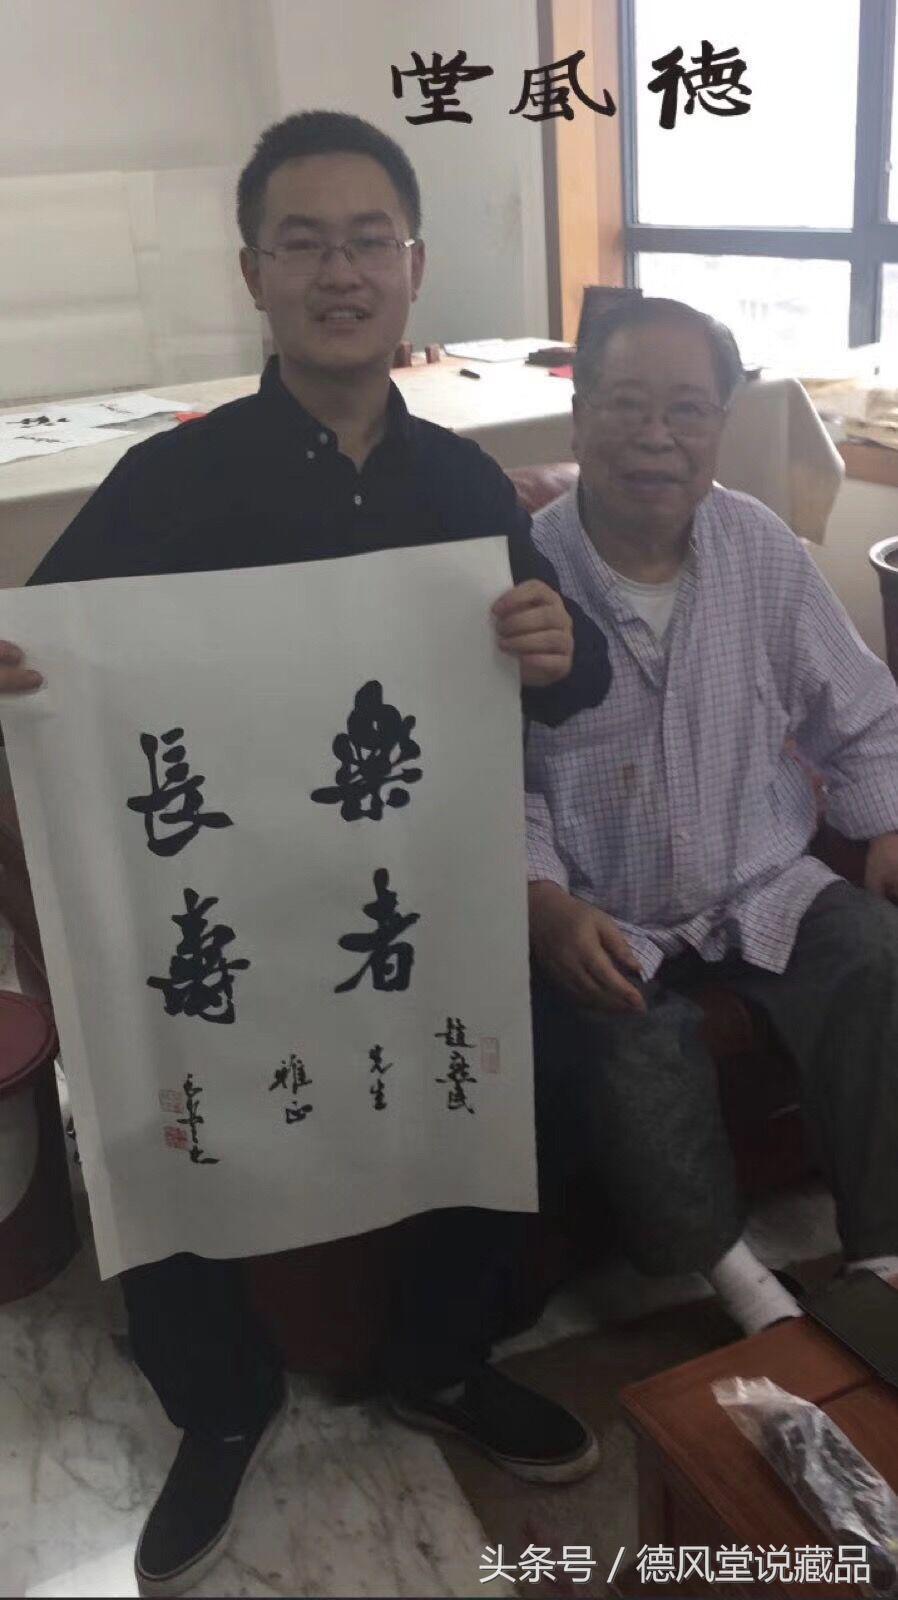 德風堂
樂者
長壽
趙 民
先生
雅正
头条号 / 德风堂说藏品